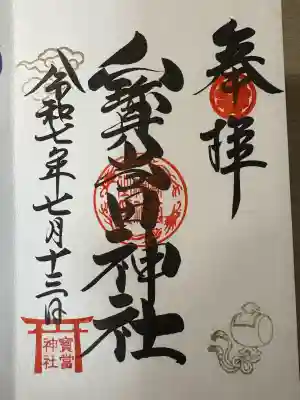 奉拝
寶當神社
令和七年七月十三日
寶當
神社